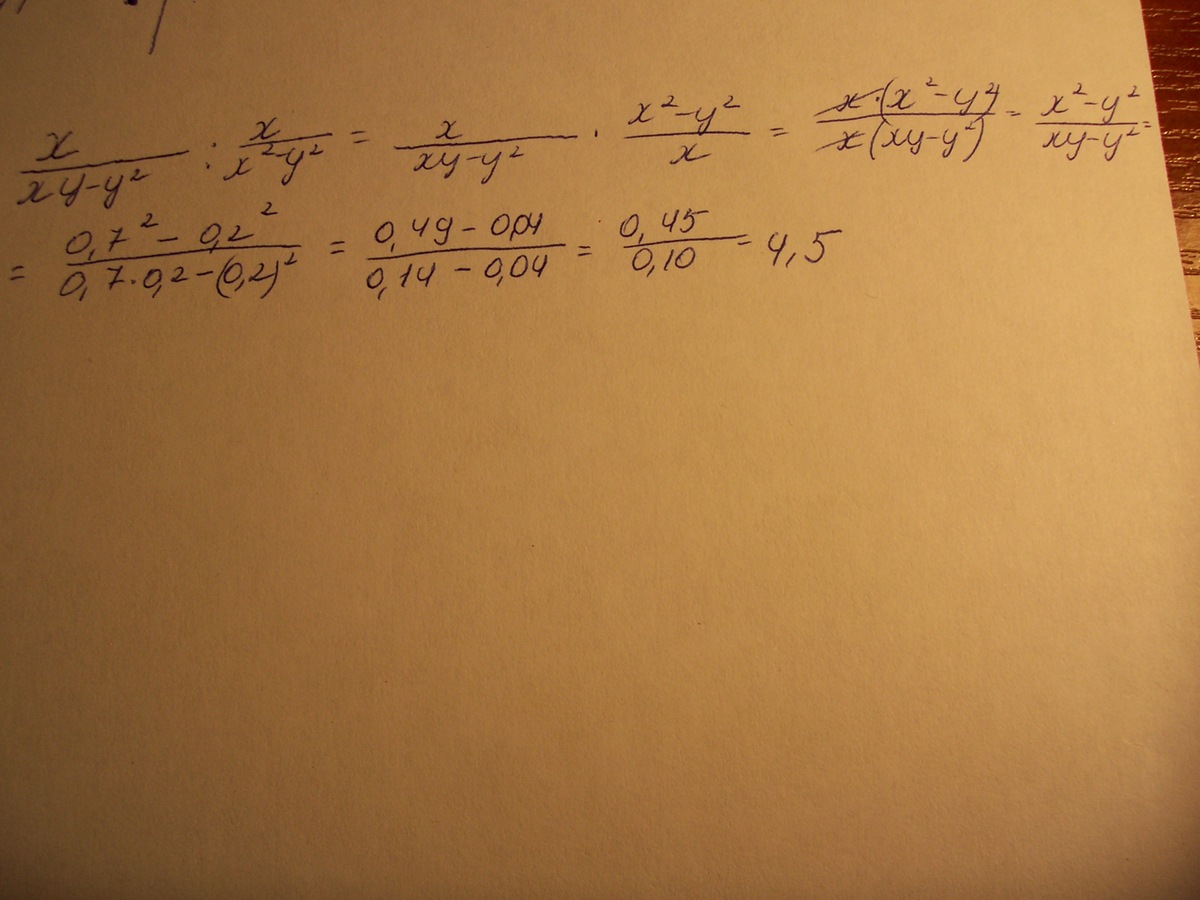 x/(xy-y²) : x/(x²-y²) = x/(xy-y²) · (x²-y²)/x = x·(x²-y²)/x(xy-y²) = (x²-y²)/(xy-y²) =
= (0,7²-0,2²)/(0,7·0,2-(0,2)²) = (0,49-0,04)/(0,14-0,04) = 0,45/0,10 = 4,5